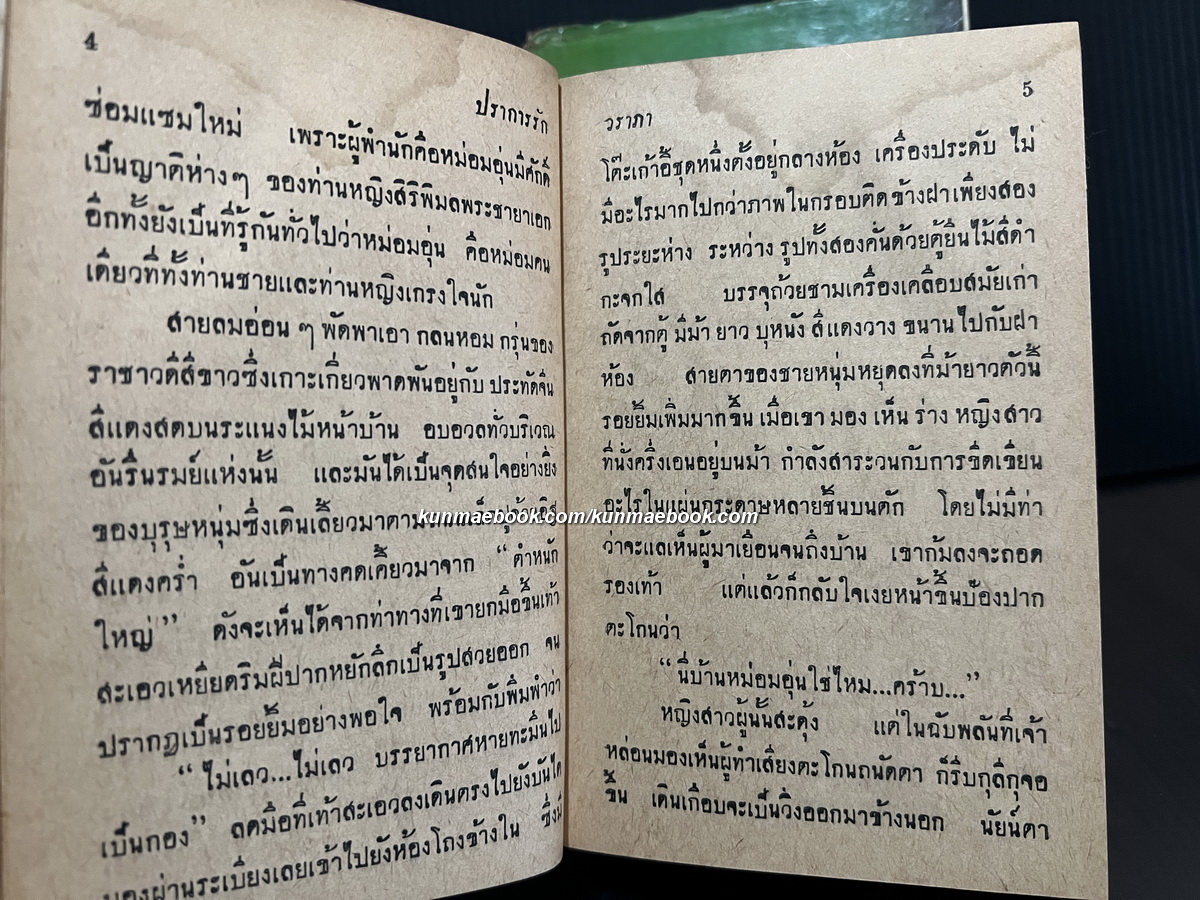 4
ปราการรัก
ซ่อมแซมใหม่ เพราะผู้พำนักคือหม่อมอุ่นมีศักดิ์
เป็นญาติห่างๆ ของท่านหญิงสิริพิมลพระชายาเอก
อีกทั้งยังเป็นที่รู้กันทั่วไปว่าหม่อมอุ่น คือหม่อมคน
เดียวที่ทั้งท่านชายและท่านหญิงเกรงใจนัก
สายลมอ่อน ๆ พัดพาเอา กลิ่นหอม กรุ่นของ
ราชาวดีสีขาวซึ่งเกาะเกี่ยวพาดพันอยู่กับ ประทัดจีน
สีแดงสดบนระแนงไม้หน้าบ้าน อบอวลทั่วบริเวณ
อันรื่นรมย์แห่งนั้น และมันได้เป็นจุดสนใจอย่างยิ่ง
ของบุรุษหนุ่มซึ่งเดินเลี้ยวมาตาม
สีแดงคร่ำ อันเป็นทางคดเคี้ยวมาจาก “ตำหนัก
ใหญ่” ดังจะเห็นได้จากท่าทางที่เขายกมือขึ้นเท้า
สะเอวเหยียดริมฝีปากหยักลึกเป็นรูปสวยออก จน
ปรากฏเป็นรอยยิ้มอย่างพอใจ พร้อมกับพึมพำว่า
“ไม่เลว...ไม่เลว บรรยากาศหายทะมึนไป
เป็นกอง” ลดมือที่เท้าสะเอวลงเดินตรงไปยังบันได
มองผ่านระเบียงเลยเข้าไปยังห้องโถงข้างใน ซึ่งมี
5
วราภา
โต๊ะเก้าอี้ชุดหนึ่งตั้งอยู่กลางห้อง เครื่องประดับ ไม่
มีอะไรมากไปกว่าภาพในกรอบติดข้างฝาเพียงสอง
รูประยะห่าง ระหว่าง รูปทั้งสองคั่นด้วยตู้ยืนไม้สีดำ
กะจกใส บรรจุถ้วยชามเครื่องเคลือบสมัยเก่า
ถัดจากตู้ มีม้า ยาว บุหนัง สีแดงวาง ขนานไปกับฝา
ห้อง สายตาของชายหนุ่มหยุดลงที่ม้ายาวตัวนี้
รอยยิ้มเพิ่มมากขึ้น เมื่อเขา มอง เห็น ร่าง หญิงสาว
ที่นั่งครึ่งเอนอยู่บนม้า กำลังสาระวนกับการขีดเขียน
อะไรในแผ่นกระดาษหลายชิ้นบนตัก โดยไม่มีท่า
ว่าจะแลเห็นผู้มาเยือนจนถึงบ้าน เขาก้มลงจะถอด
รองเท้า แต่แล้วก็กลับใจเงยหน้าขึ้นป้องปาก
ตะโกนว่า
“นี่บ้านหม่อมอุ่นใช่ไหม...คร้าบ...”
หญิงสาวผู้นั้นสะดุ้ง แต่ในฉับพลันที่เจ้า
หล่อนมองเห็นผู้ทำเสียงตะโกนถนัดตา ก็รีบกุลีกุจอ
ขึ้น เดินเกือบจะเป็นวิ่งออกมาข้างนอก นัยน์ตา
kunmaebook.com/kunmaebook.com